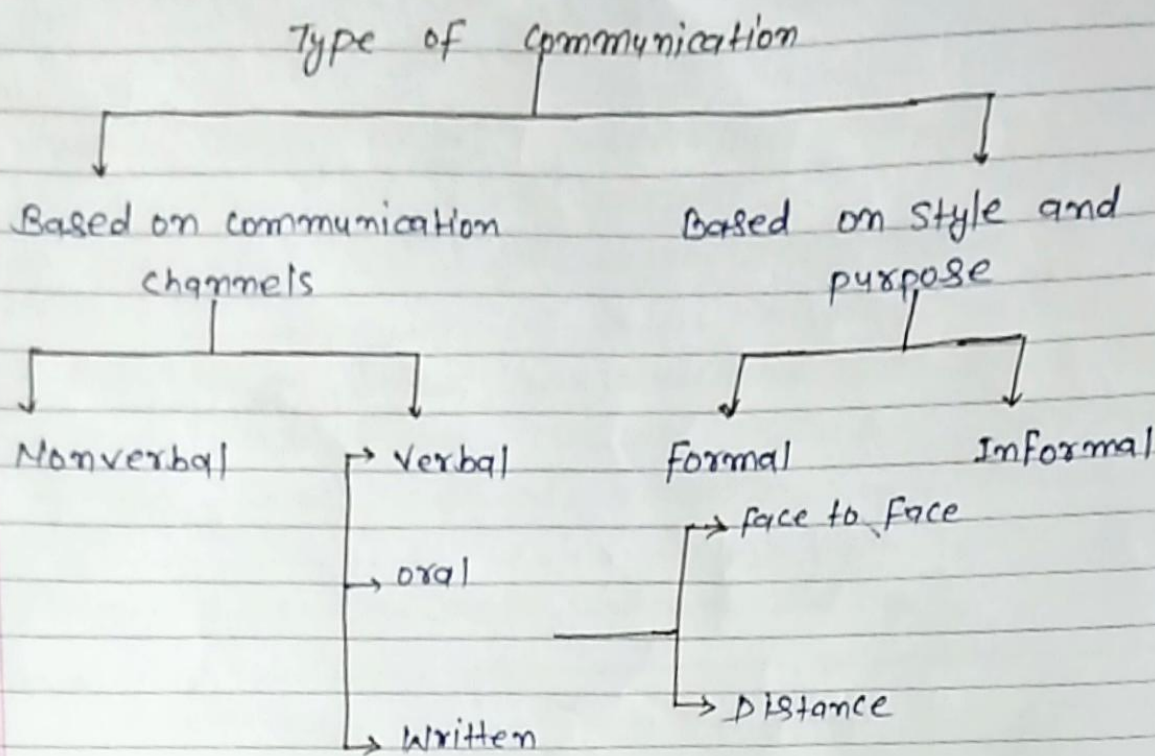 Type of Communication
Based on communication channels
Based on Style and purpose
Nonverbal
Verbal
Formal
Informal
face to face
oral
Distance
Written